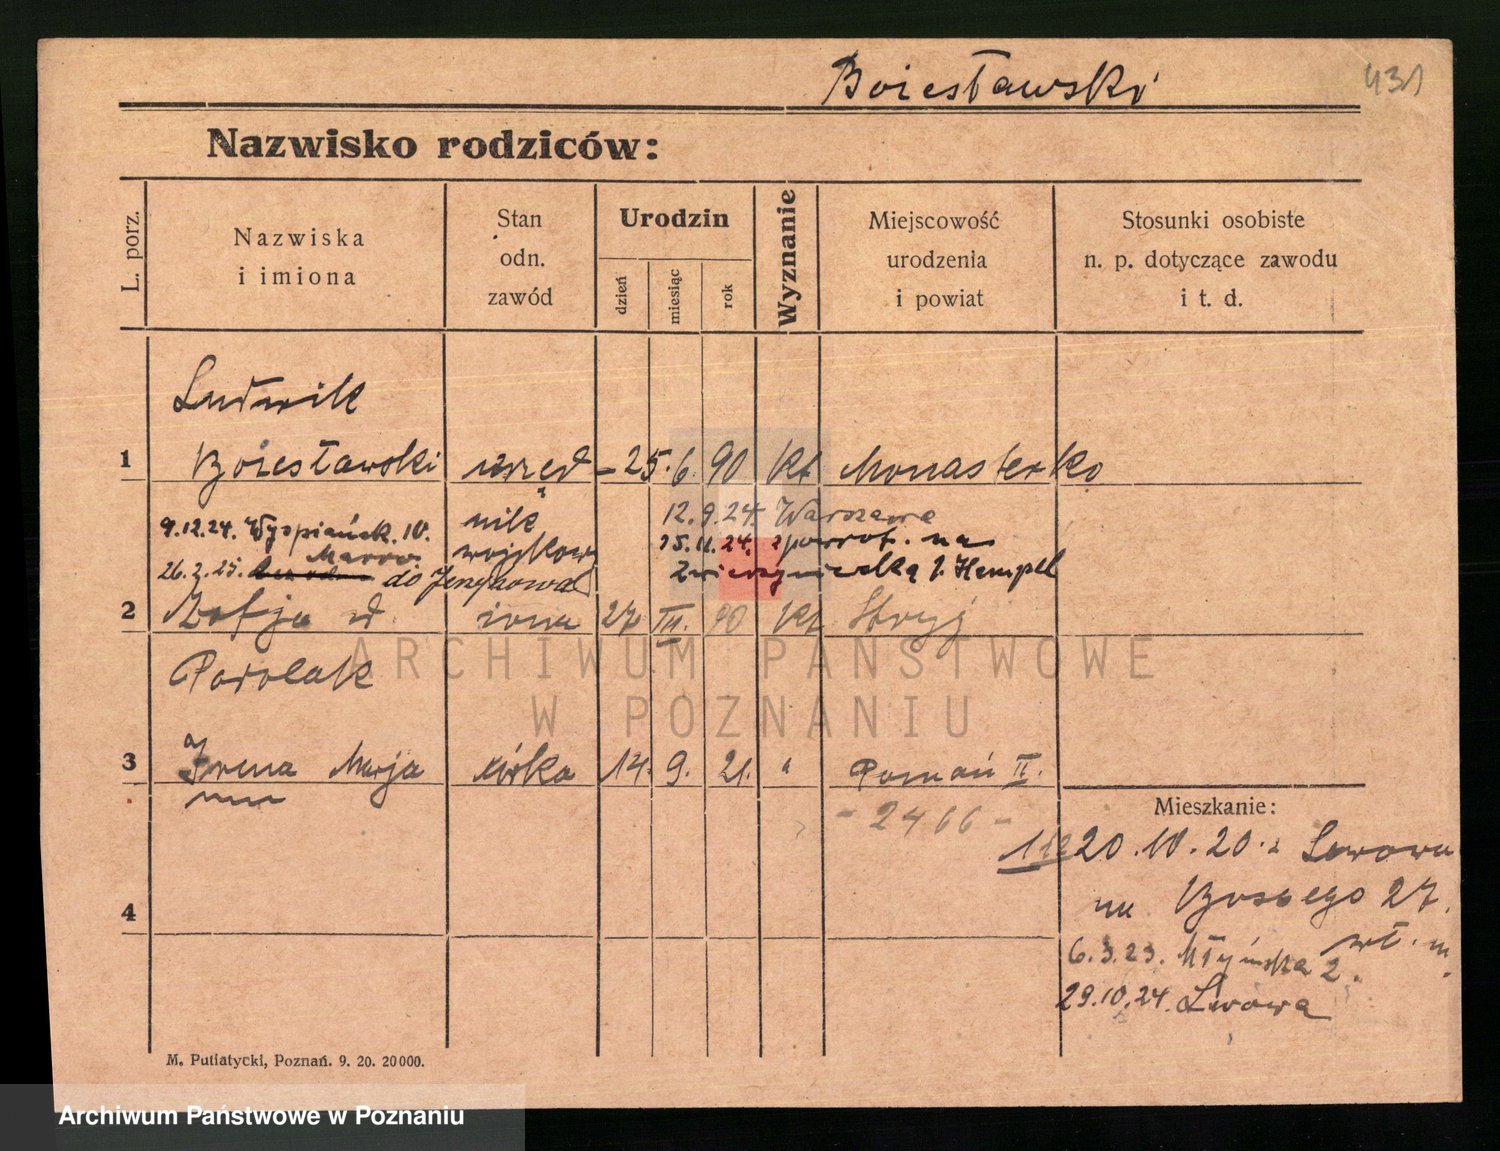 Bożesławski
431
Nazwisko rodziców:
L. porz.
Nazwiska
i imiona
Stan
odn.
zawód
Urodzin
dzień
miesiąc
rok
Wyznanie
Miejscowość
urodzenia
i powiat
Stosunki osobiste
n. p. dotyczące zawodu
i t. d.
Ludwik
1 Bożesławski urzęd- 25. 6. 90 kt Monasterko
nik 12.9.24. Warszawa
9.12.24. Wyspiańsk. 10. wojskow 25.11.24. zpowrot. na
26.2.25. do Zwierzyniecką J. Hempel
2 Zofja żona 27 III. 90 kt Stryj
Parolak
3 Irena Marja córka 14. 9. 21. " Poznań II.
- 2466 -
Mieszkanie:
20.10.20. z Lwowa
27.
4
6.3.23. Młyńska 2.
29.10.24. Lwowa
M. Putiatycki, Poznań. 9. 20. 20000.
ARCHIWUM PAŃSTWOWE
W POZNANIU
Archiwum Państwowe w Poznaniu